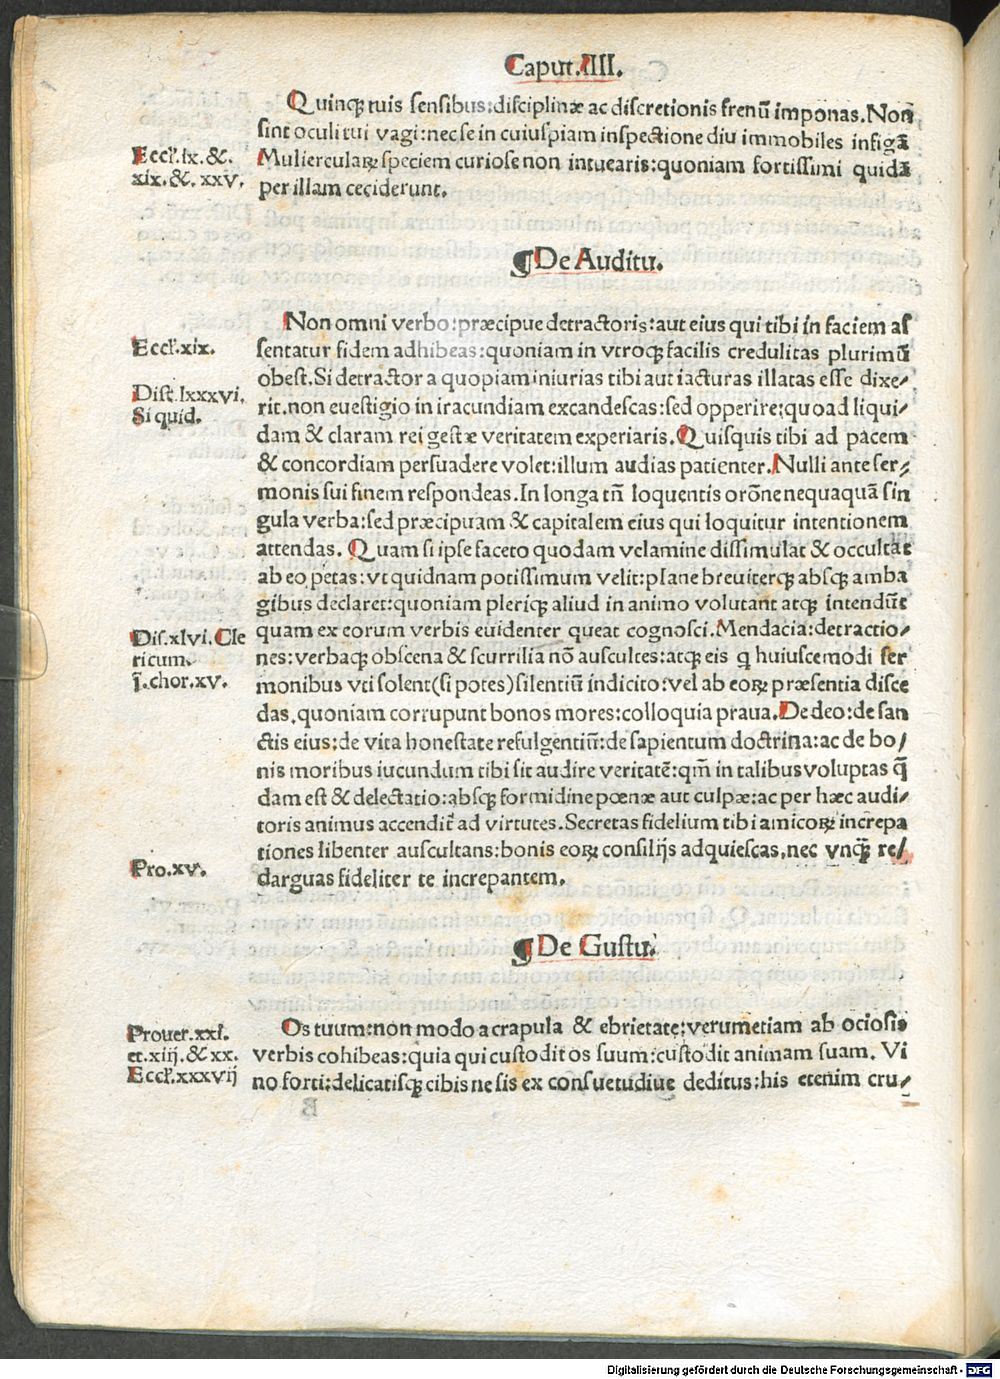 Caput.IIII.
Quinqꝫ tuis sensibus:disciplinæ ac discretionis frenū imponas.Non
sint oculi tui vagi:nec se in cuiuspiam inspectione diu immobiles infigāt
Eccl'.ix.&.
xix.&.xxv.
Muliercularꝝ speciem curiose non intuearis:quoniam fortissimi quidā
per illam ceciderunt.
¶De Auditu.
Non omni verbo:præcipue detractoris:aut eius qui tibi in faciem as
Eccl'.xix.
sentatur fidem adhibeas:quoniam in vtroqꝫ facilis credulitas plurimū
obest.Si detractor a quopiam iniurias tibi aut iacturas illatas esse dixe/
Dist.lxxxvi.
Si quid.
rit.non euestigio in iracundiam excandescas:sed opperire:quoad liqui/
dam & claram rei gestæ veritatem experiaris.Quisquis tibi ad pacem
& concordiam persuadere volet:illum audias patienter.Nulli ante ser/
monis sui finem respondeas.In longa tn̄ loquentis orōne nequaquā sin
gula verba:sed præcipuam & capitalem eius qui loquitur intentionem
attendas. Quam si ipse faceto quodam velamine dissimulat & occultat
ab eo petas:vt quidnam potissimum velit:plane breuiterqꝫ absqꝫ amba
gibus declaret:quoniam pleriqꝫ aliud in animo volutant atqꝫ intendūt
Dis.xlvi.Cle
ricum.
j̄.chor.xv.
quam ex eorum verbis euidenter queat cognosci.Mendacia:detractio/
nes:verbaqꝫ obscena & scurrilia nō auscultes:atqꝫ eis q huiuscemodi ser
monibus vti solent(si potes)silentiū indicito:vel ab eorꝝ præsentia disce
das.quoniam corrupunt bonos mores:colloquia praua.De deo:de san
ctis eius:de vita honestate refulgentiū:de sapientum doctrina:ac de bo/
nis moribus iucundum tibi sit audire veritatē:qm̄ in talibus voluptas q̄
dam est & delectatio:absqꝫ formidine pœnæ aut culpæ:ac per hæc audi/
toris animus accendit̄ ad virtutes.Secretas fidelium tibi amicorꝝ increpa
Pro.xv.
tiones libenter auscultans:bonis eorꝝ consilijs adquiescas.nec vnqꝫ̄ re/
darguas fideliter te increpantem.
¶De Gustu.
Prouer.xxi.
et.xiij.&.xx.
Eccl'.xxxvij
Os tuum:non modo a crapula & ebrietate:verumetiam ab ociosis
verbis cohibeas:quia qui custodit os suum:custodit animam suam. Vi
no forti:delicatisqꝫ cibis ne sis ex consuetudiue deditus:his etenim cru/
Digitalisierung gefördert durch die Deutsche Forschungsgemeinschaft - DFG